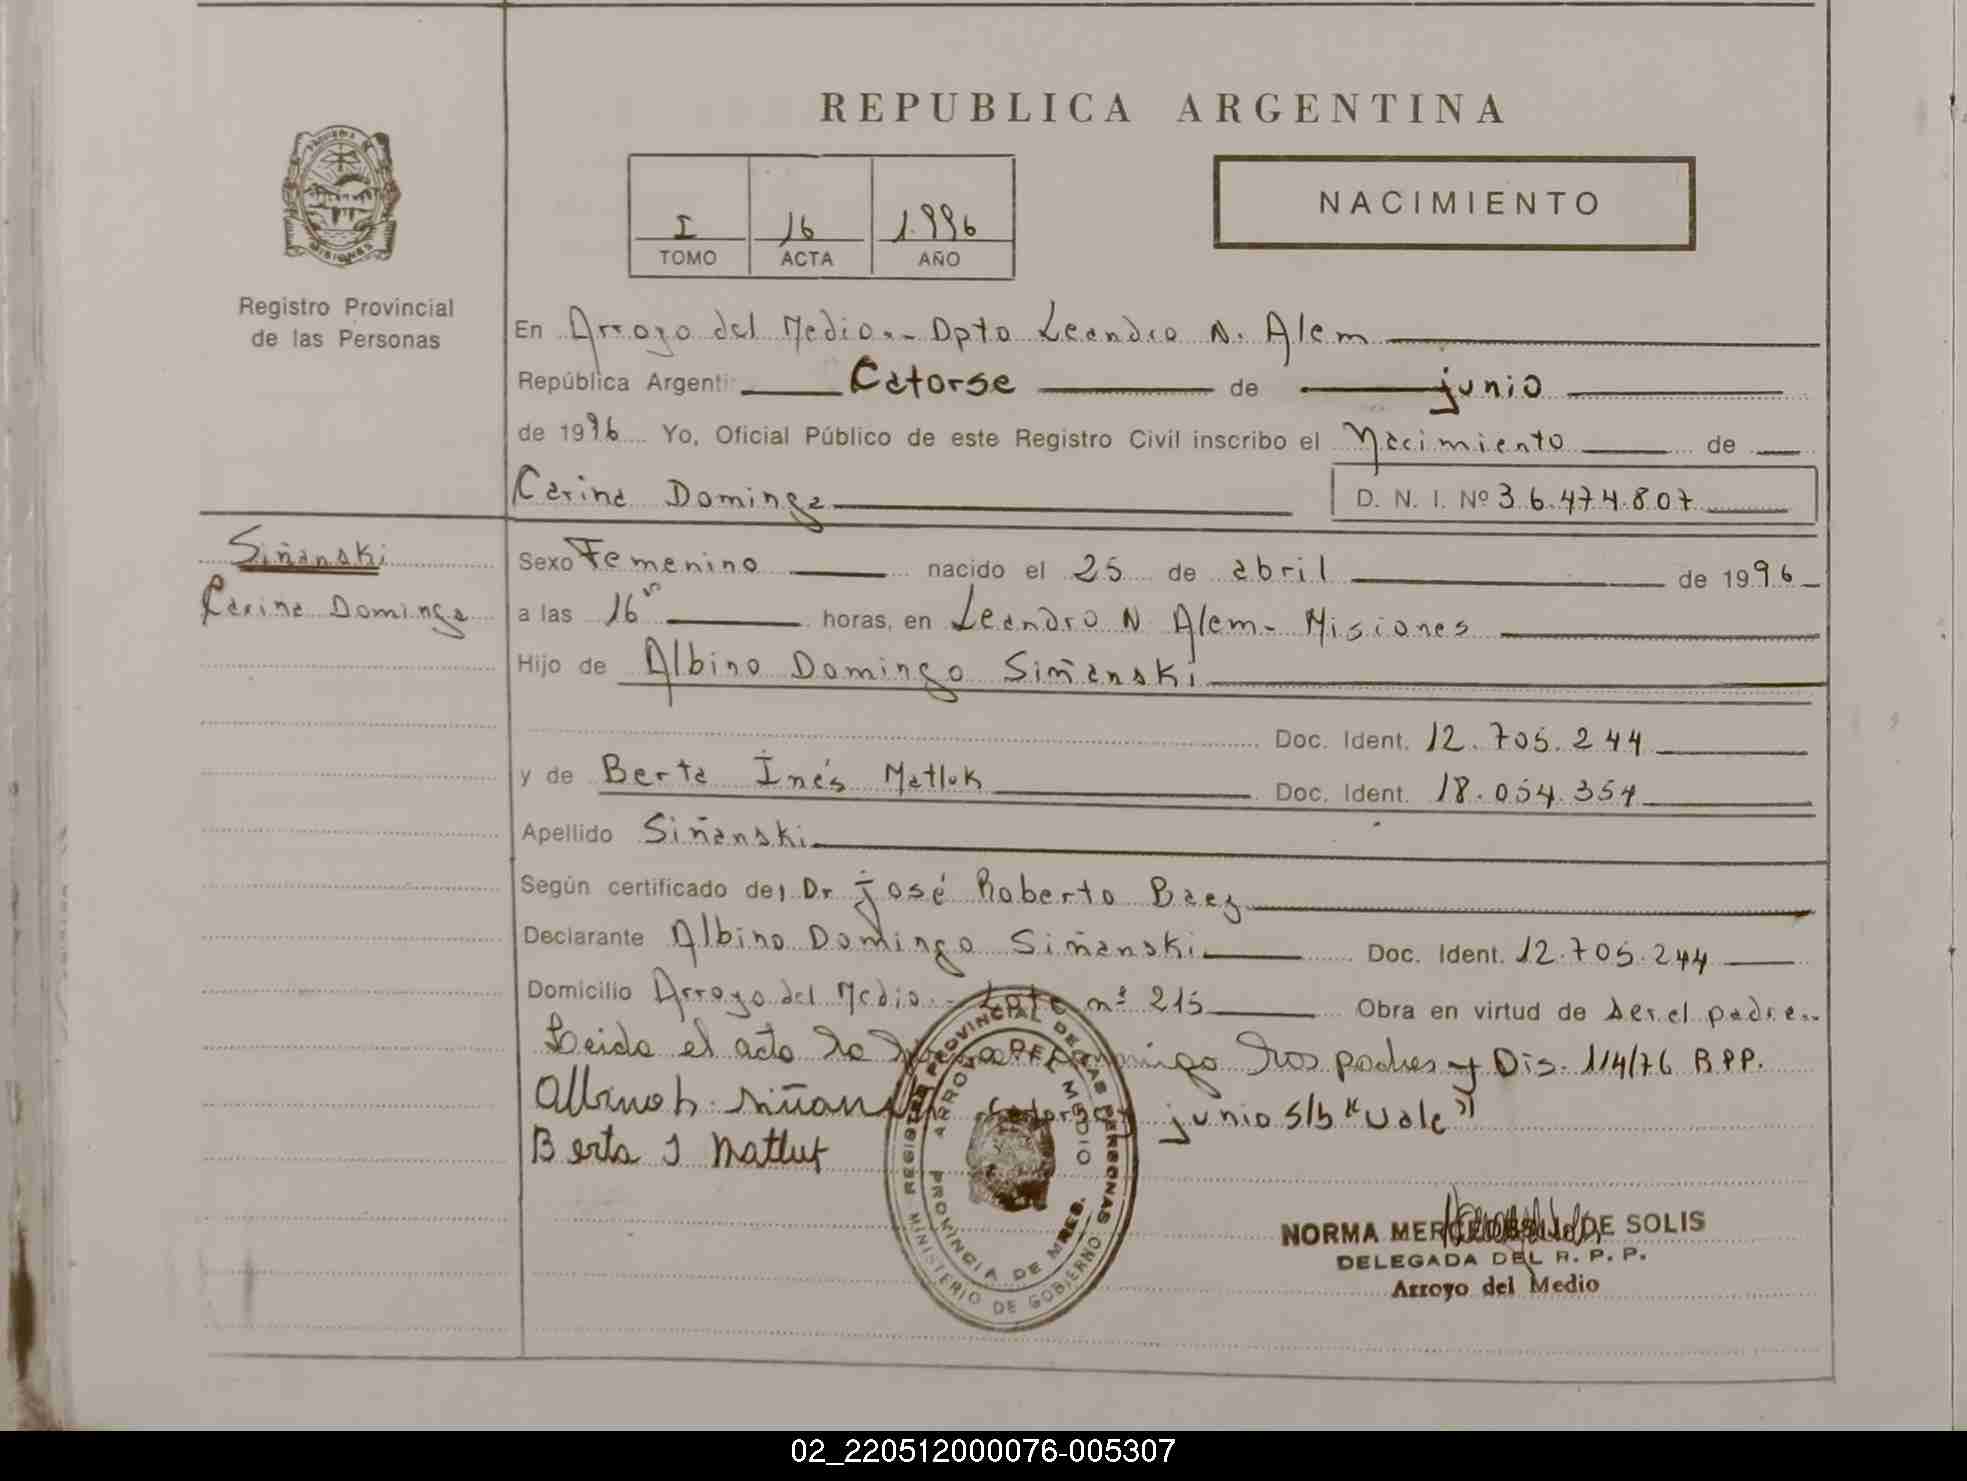 REPUBLICA ARGENTINA
I 16 1.996
TOMO ACTA AÑO
NACIMIENTO
MISIONES
Registro Provincial
de las Personas
En Arroyo del Medio.- Dpto Leandro N. Alem
República Argenti Catorse de junio
de 1996 Yo, Oficial Público de este Registro Civil inscribo el Nacimiento de
Carina Dominga D. N. I. Nº 36.474.807
Siñanski
Carina Dominga
Sexo Femenino nacido el 25 de abril de 1996
a las 16 horas, en Leandro N. Alem - Misiones
Hijo de Albino Domingo Siñanski
Doc. Ident. 12.705.244
y de Berta Inés Matlok Doc. Ident. 18.054.354
Apellido Siñanski
Según certificado del Dr. José Roberto Baez
Declarante Albino Domingo Siñanski Doc. Ident. 12.705.244
Domicilio Arroyo del Medio.- Lote nº 215 Obra en virtud de ser el padre.-
Leida el acta la conmigo los padres y Dis. 114/76 RPP.
Albino D. Siñan junio s/b "Vale"
Berta I Matluk
REGISTRO PROVINCIAL DE LAS PERSONAS
ARROYO DEL MEDIO
PROVINCIA DE MNES.
MINISTERIO DE GOBIERNO
NORMA DE SOLIS
DELEGADA DEL R. P. P.
Arroyo del Medio
02_220512000076-005307